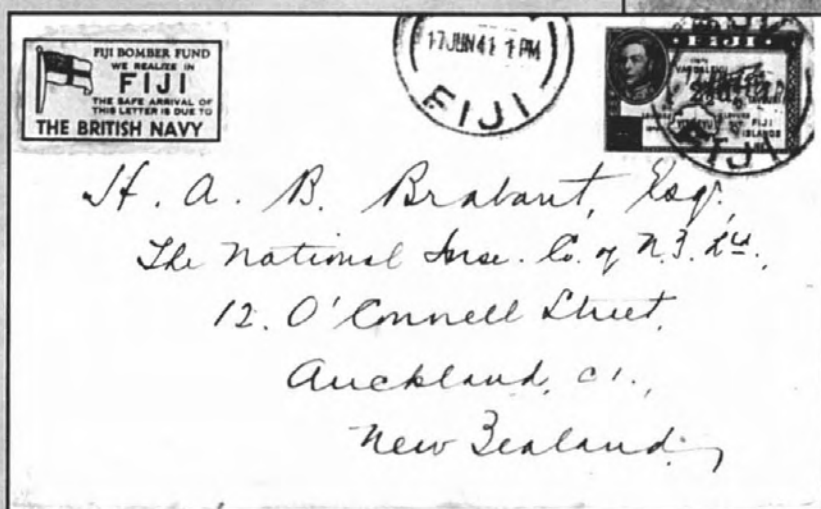 FIJI BOMBER FUND
WE REALIZE IN
FIJI
THE SAFE ARRIVAL OF
THIS LETTER IS DUE TO
THE BRITISH NAVY
17 JUN 41 1 PM
FIJI
FIJI
FIJI
ISLANDS
FIJI
H. A. B. Brabant, Esq.,
The National Insce. Co. of N.Z. Ltd.,
12. O'Connell Street,
Auckland, C1.,
New Zealand.